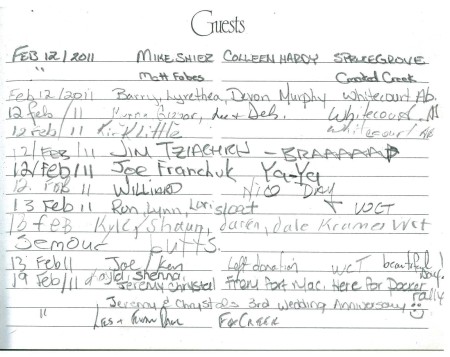 Guests
FEB 12/2011 MIKE SHIER COLLEEN HARDY SPRUCEGROVE
" Matt Fabes Crooked Creek
Feb 12/2011 Barry, Lyrethea, Devon Murphy Whitecourt Ab.
12 Feb /11 & Deb. Whitecourt, A
12 Feb /11 Kir Little Whitecourt AB
12/FEB/11 JIM TZIACHICH - BRAAAAAP
12/Feb/11 Joe Franchuk Ya-Ya
12. FEB 11 WILLIARD NICE DAY
13 Feb 11 Ron, Lynn, Lori WCT
13 feb Kyle, Shaun, daren, dale Kramer Wct
Semour butts.
13 Feb 11 Joe / Ken Left donation WCT beautiful Day!
19 Feb/11 Kayla, Shenna, Jeremy, Chrystel From Fort Mac. Here For Pocker rally
Jeremy & Chrystel's 3rd Wedding Anniversary
" Les & Fox Creek